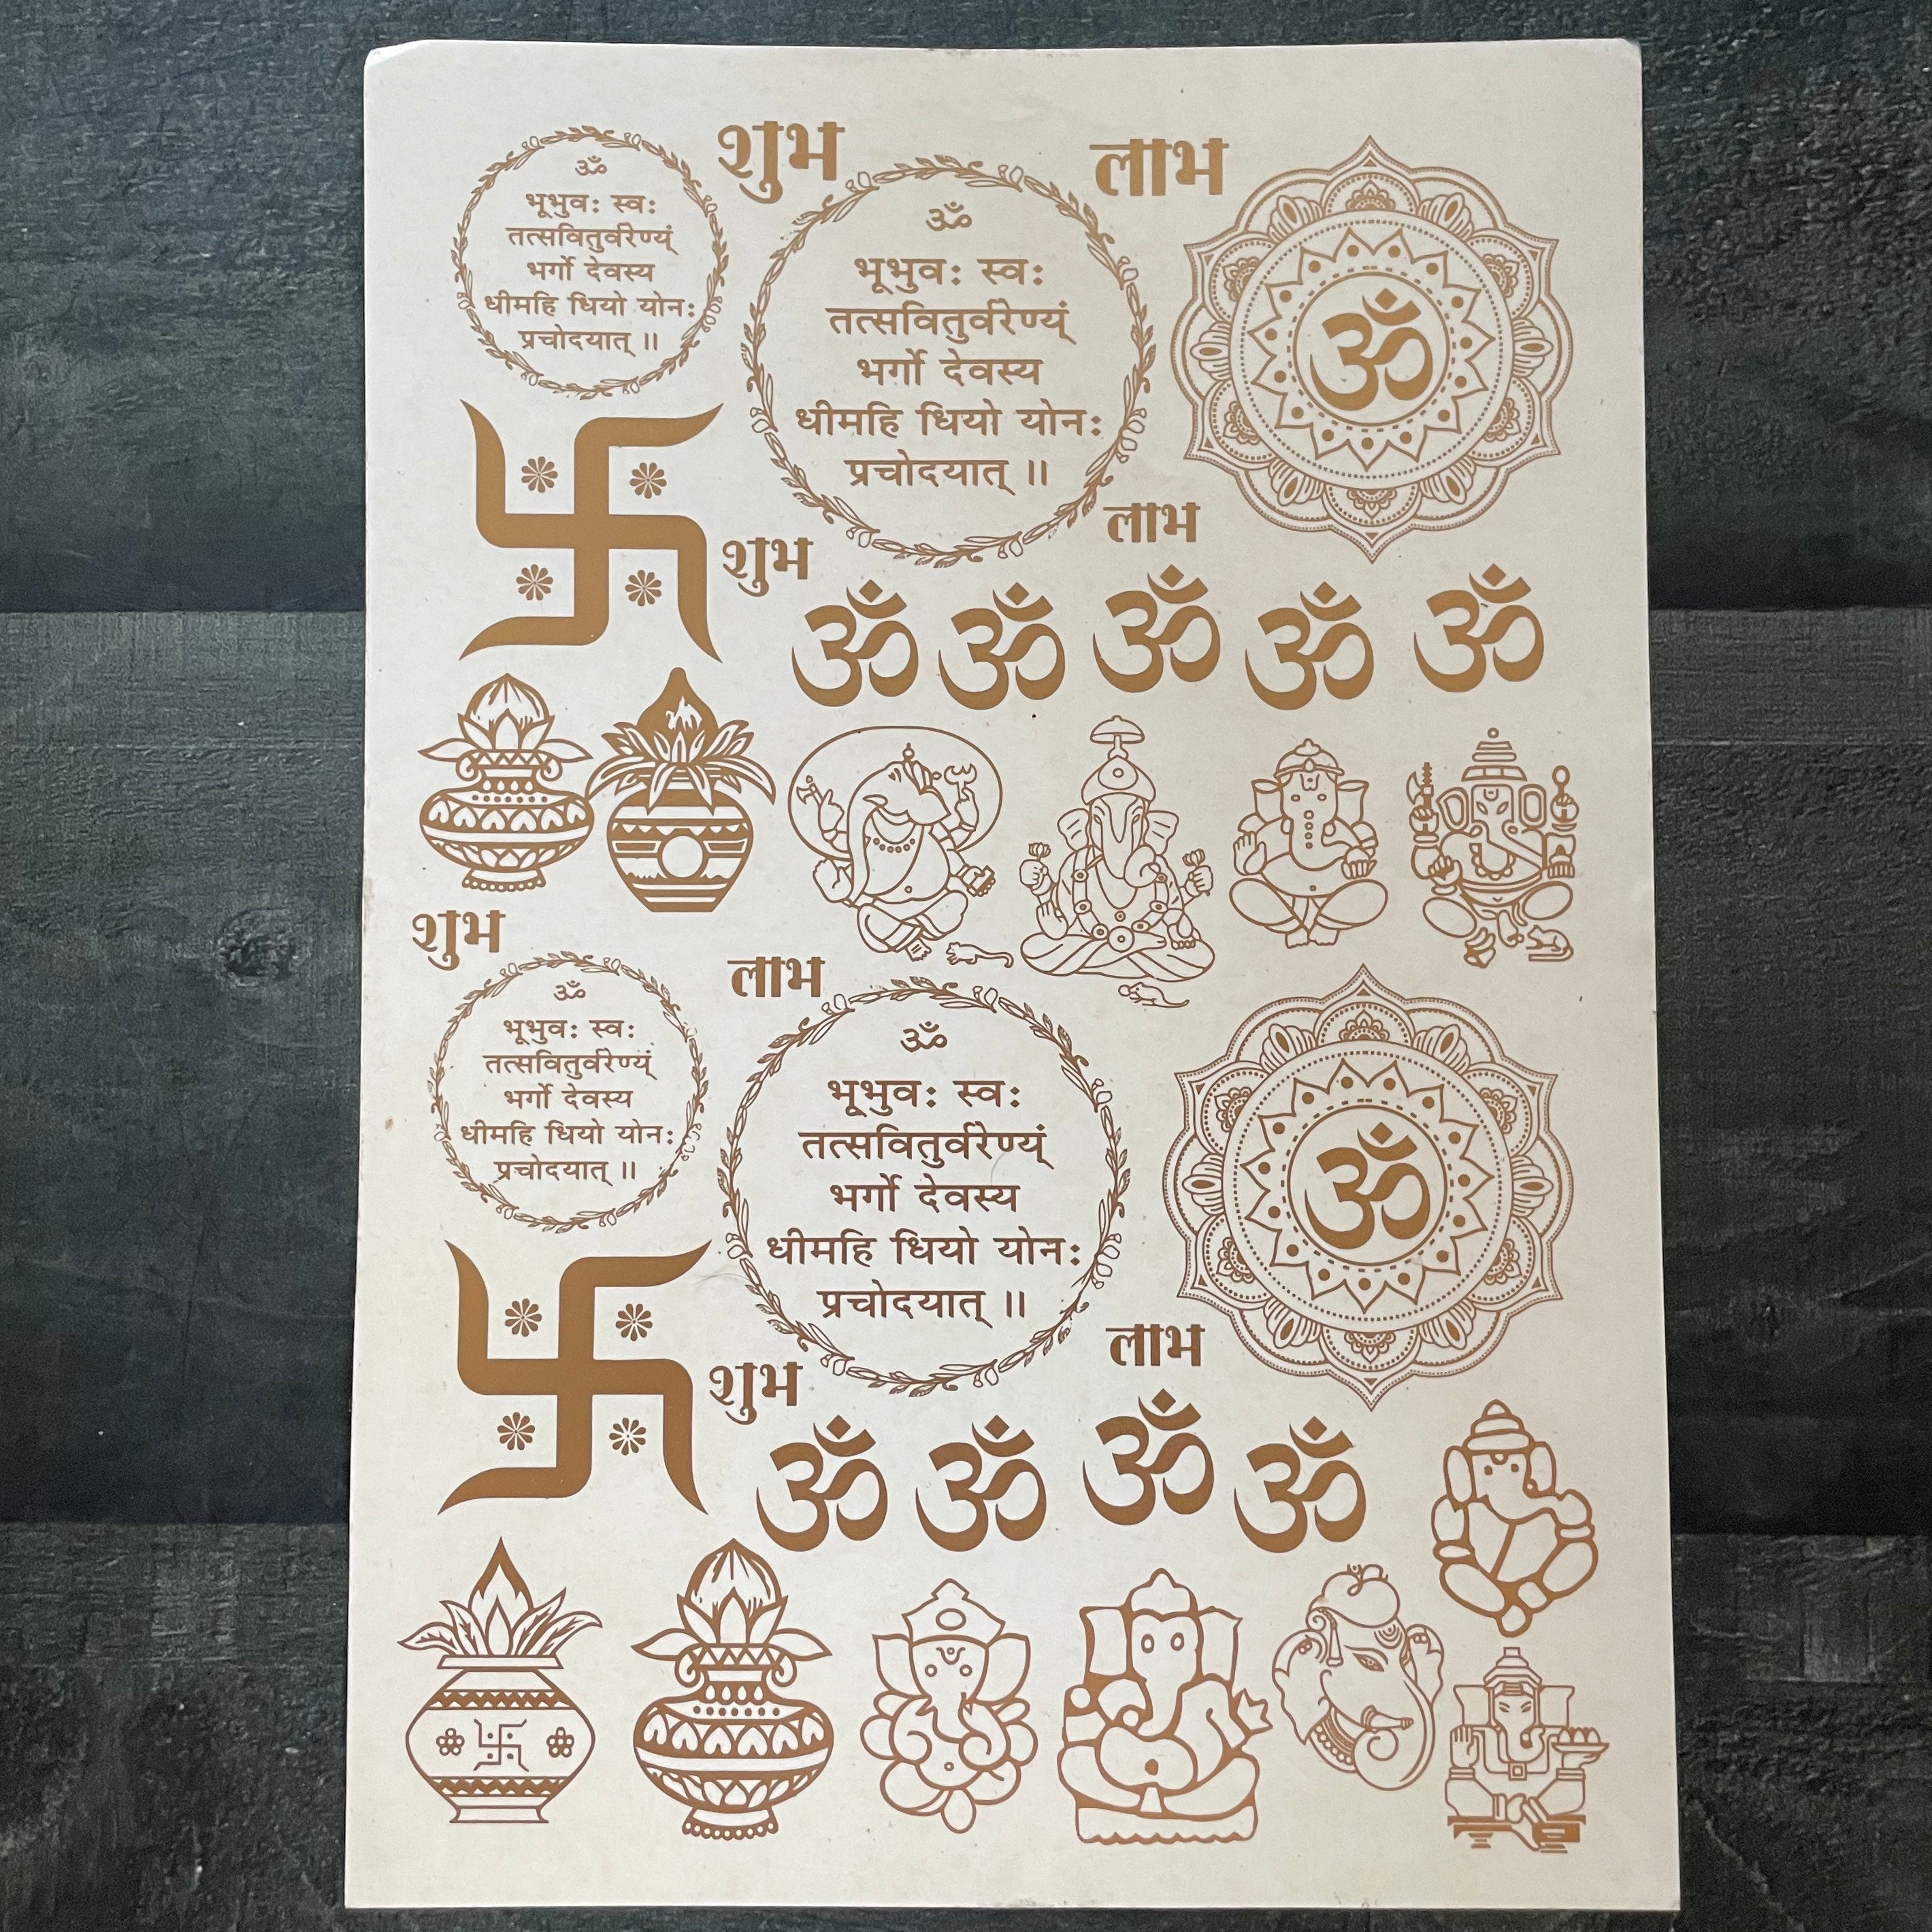 शुभ
लाभ
ॐ
भूभुवः स्वः
तत्सवितुर्वरेण्यं
भर्गो देवस्य
धीमहि धियो योनः
प्रचोदयात् ॥
ॐ
भूभुवः स्वः
तत्सवितुर्वरेण्यं
भर्गो देवस्य
धीमहि धियो योनः
प्रचोदयात् ॥
ॐ
शुभ
लाभ
ॐ ॐ ॐ ॐ ॐ
शुभ
लाभ
ॐ
भूभुवः स्वः
तत्सवितुर्वरेण्यं
भर्गो देवस्य
धीमहि धियो योनः
प्रचोदयात् ॥
ॐ
भूभुवः स्वः
तत्सवितुर्वरेण्यं
भर्गो देवस्य
धीमहि धियो योनः
प्रचोदयात् ॥
ॐ
शुभ
लाभ
ॐ ॐ ॐ ॐ